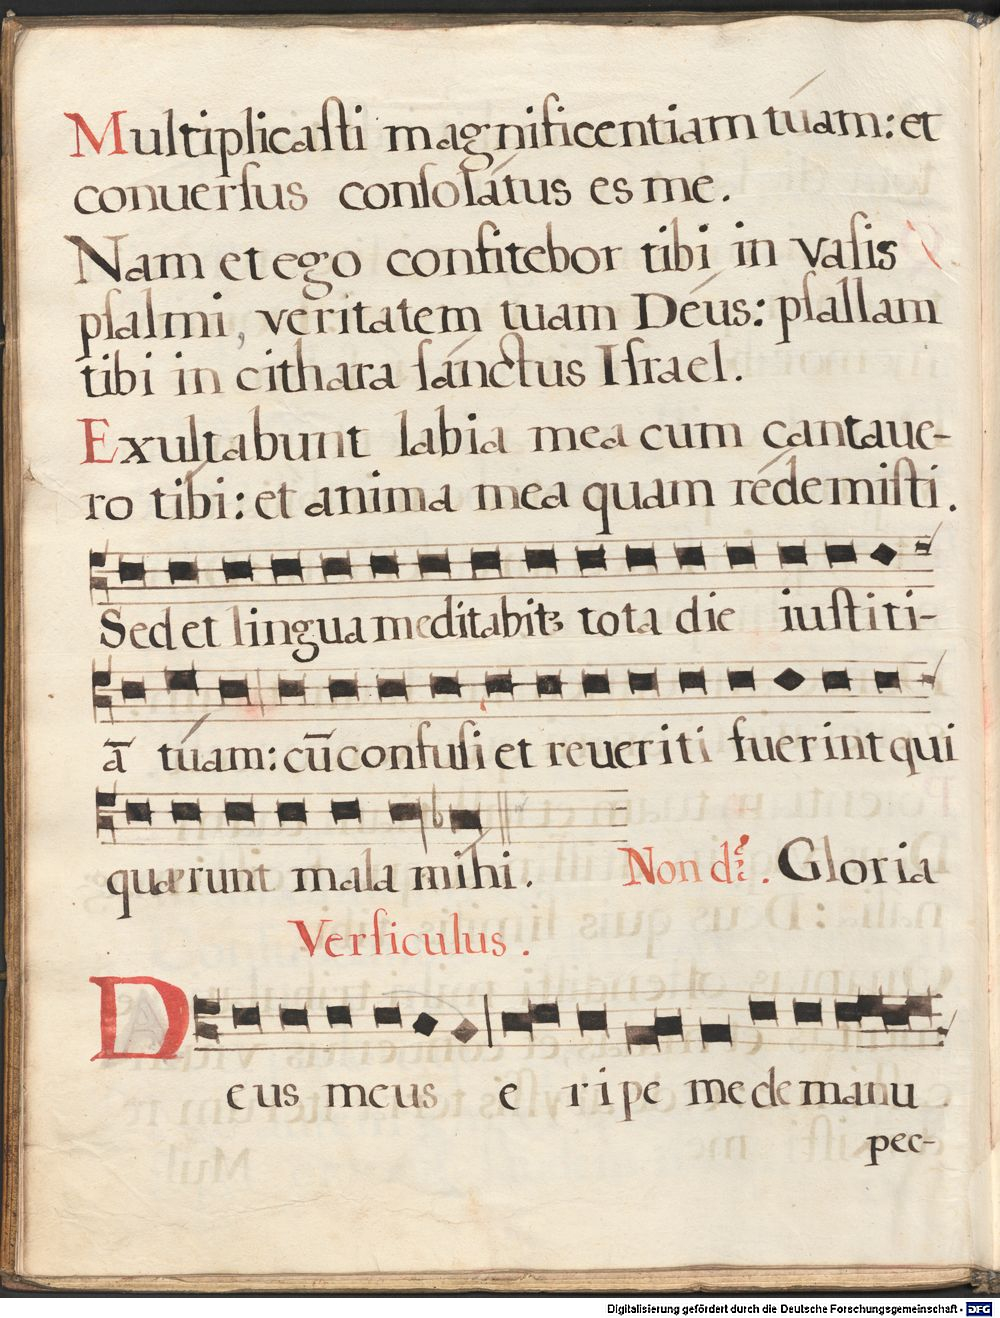 Multiplicaſti magnificentiam túam: et
conuerſus conſolátus es me.
Nam et ego confitebor tibi in vaſis
pſalmi, veritatem tuam Déus: pſallam
tibi in cithara ſánctus Iſrael.
Exultabunt labia mea cum cantaue-
ro tíbi: et anima mea quam rédemiſti.
Sed et lingua meditabitꝫ tota die iuſtiti-
ā túam: cū confuſi et reueriti fuerint qui
quærunt mala míhi. Non dꝛ. Gloria
Verſiculus.
Deus meus eripe me de manu
pec-
Digitalisierung gefördert durch die Deutsche Forschungsgemeinschaft - DFG